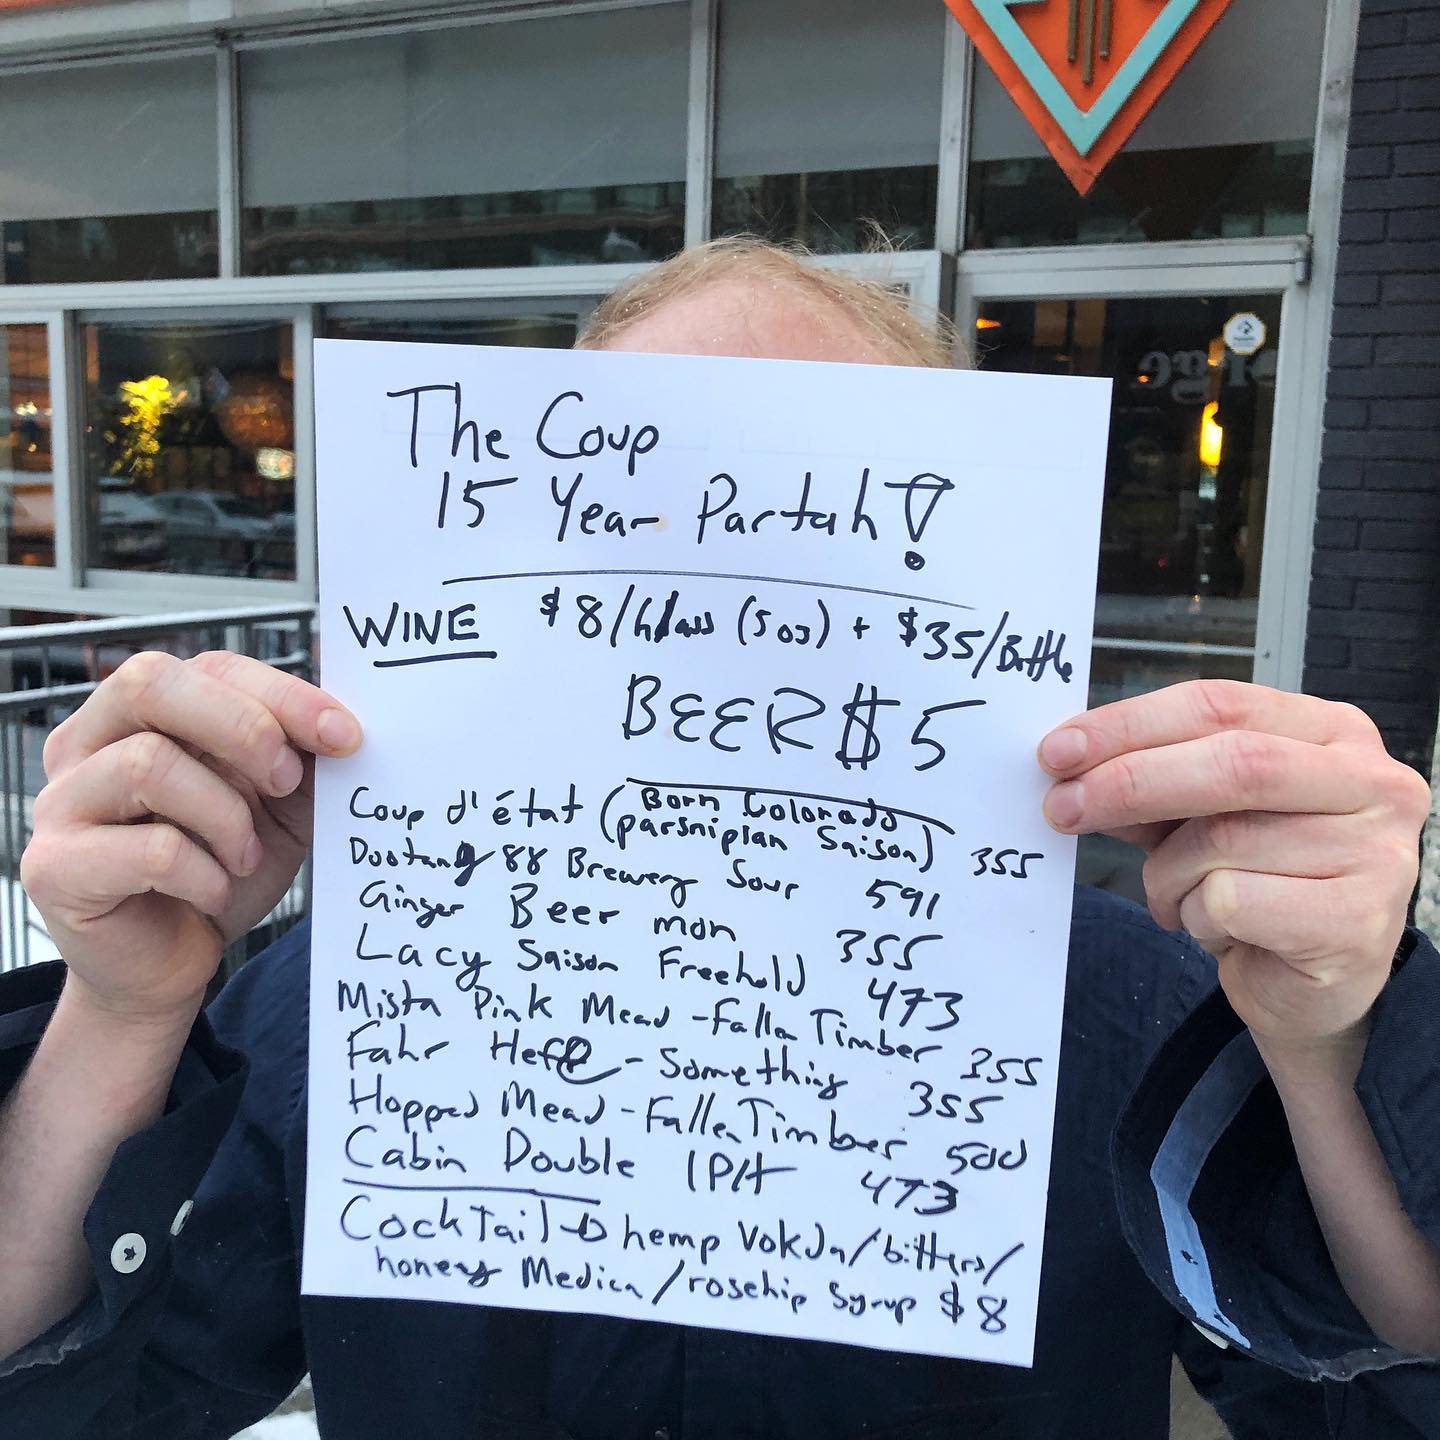 The Coup
15 Year Partah!
WINE $8/Glass (5oz) + $35/Bottle
BEER $5
Coup d'état (Born Colorado
parsniplan Saison) 355
Duotang 88 Brewery Sour 591
Ginger Beer mon 355
Lacy Saison Freehold 473
Mista Pink Mead - Fallen Timber 355
Fahr Hefe - Something 355
Hopped Mead - Fallen Timber 500
Cabin Double IPA 473
Cocktail → hemp Vokda/bitters/
honey Medica/rosehip Syrup $8